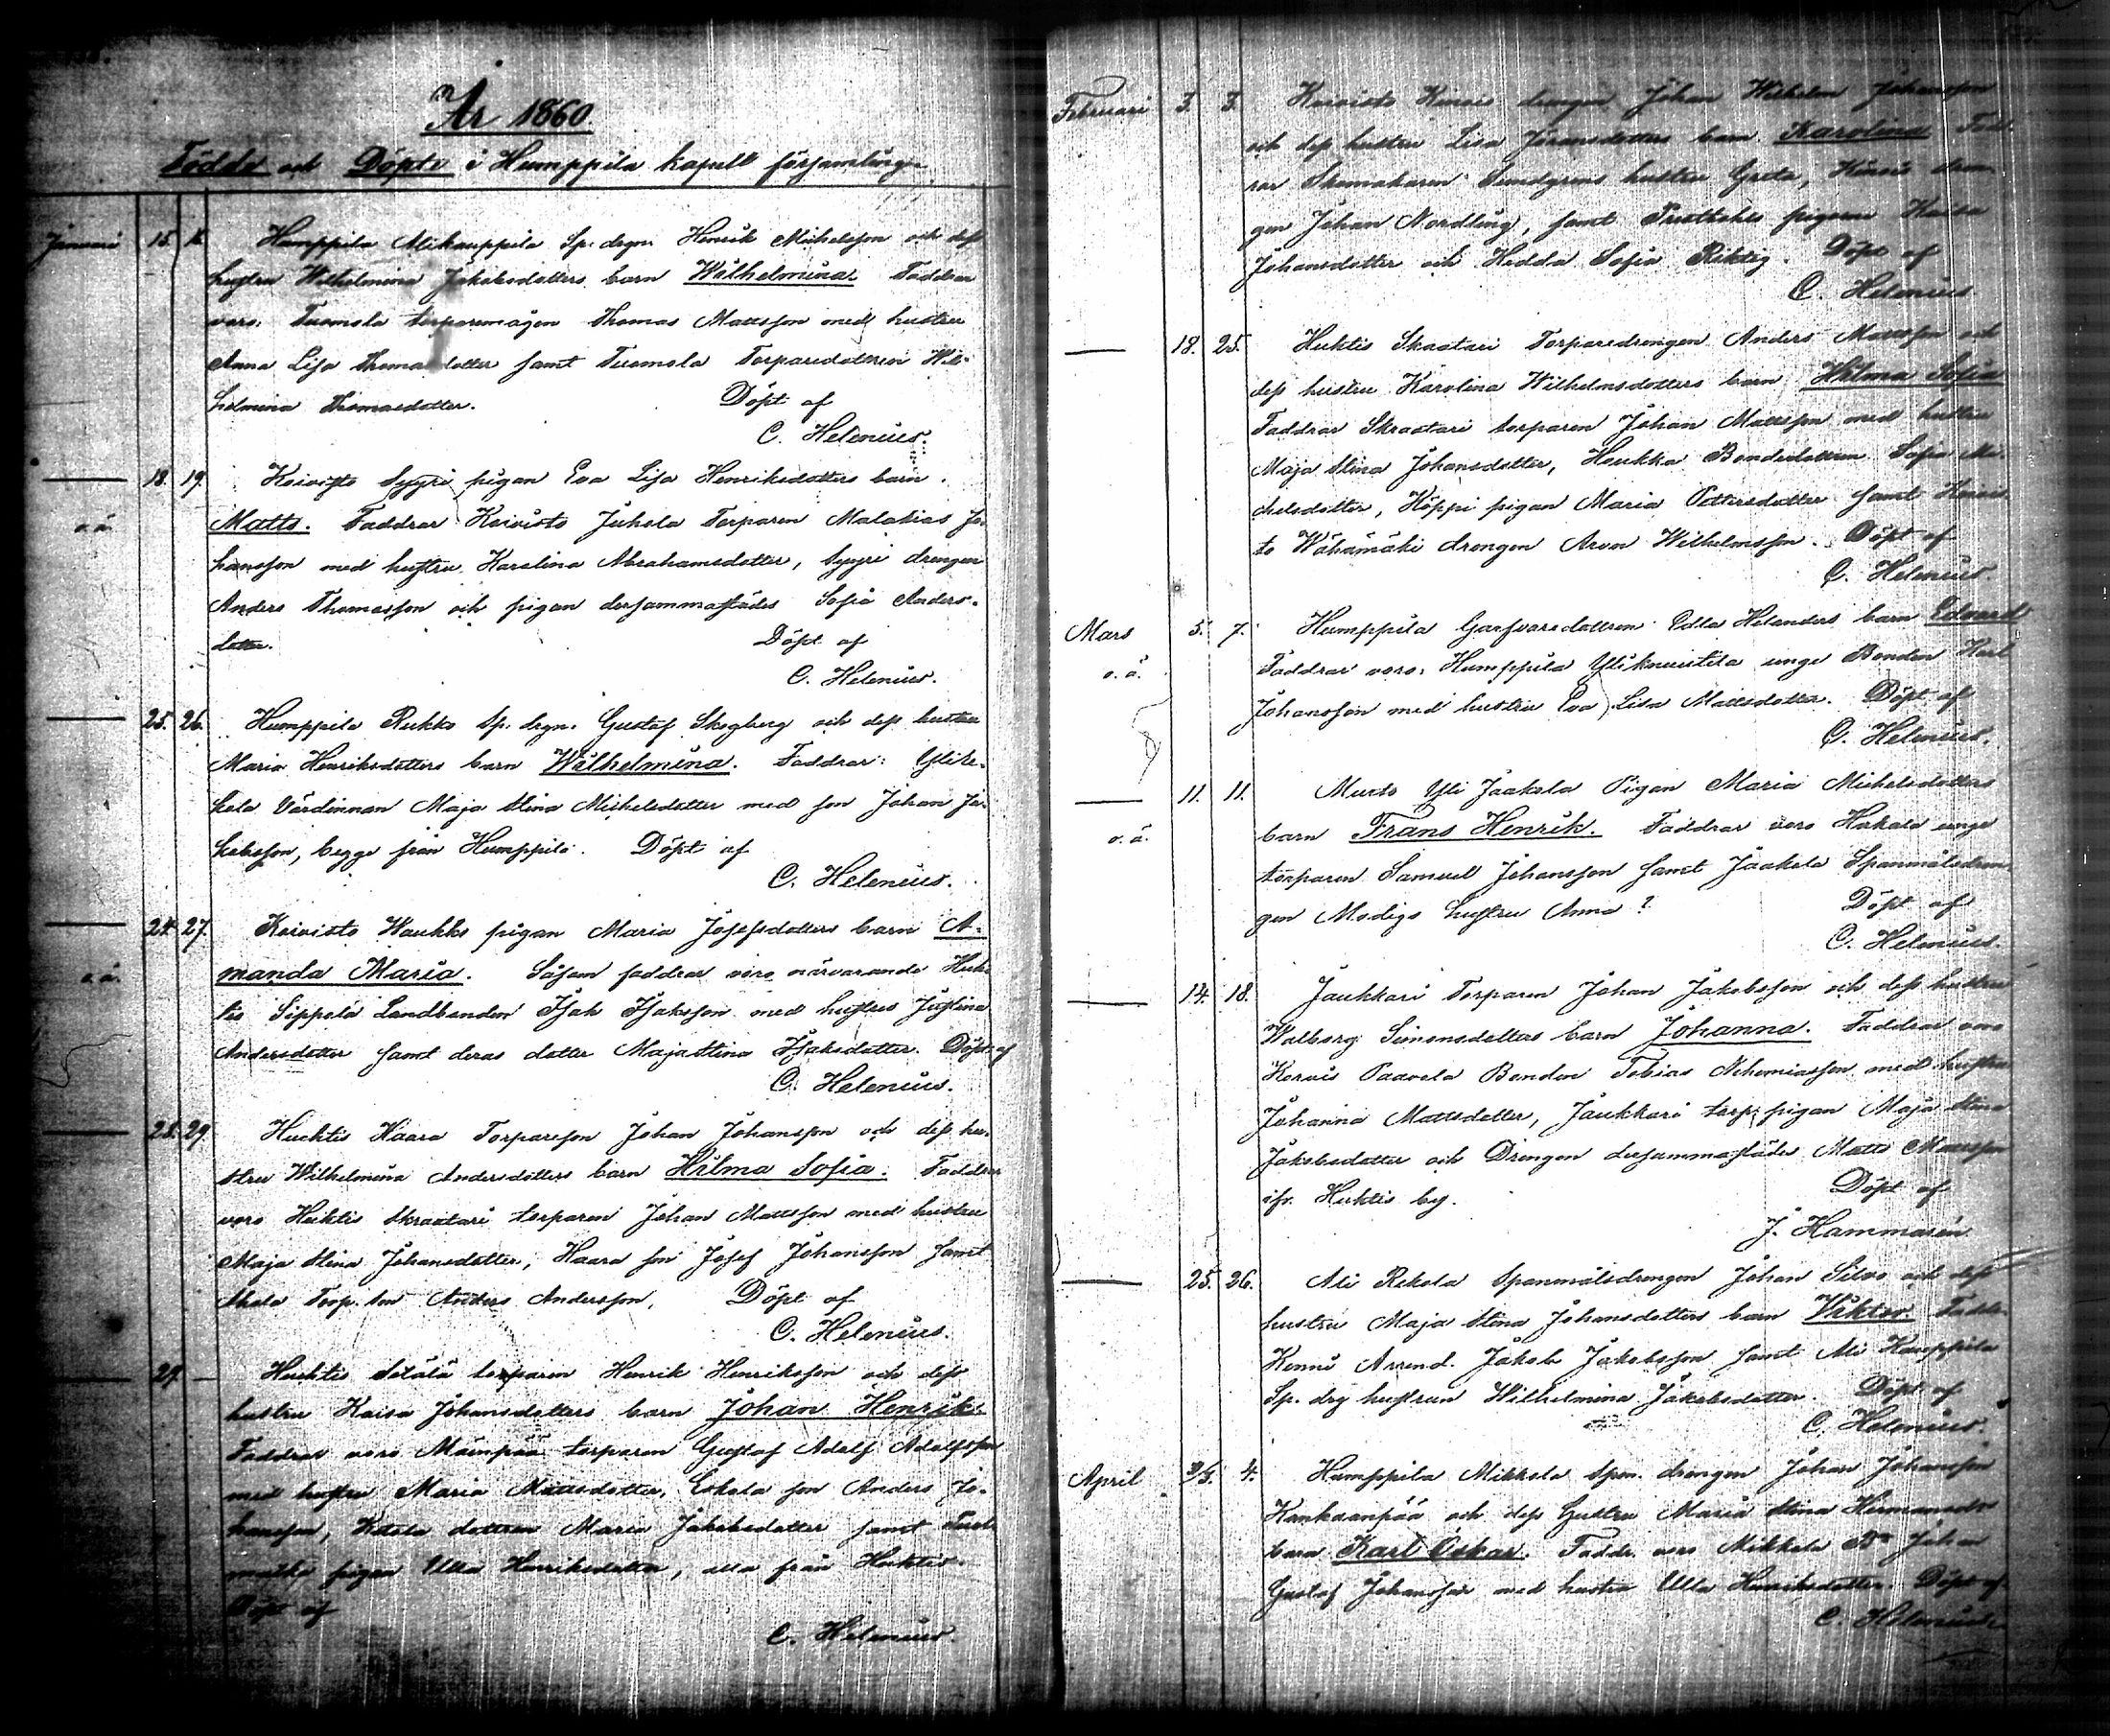 År 1860.
Födde och Döpte i Humppila kapell församlingen
Januari 15. Humppila Alikauppila Sp. drgn. Henrik Michelsson och dess
hustru Wilhelmina Jakobsdotters barn Wilhelmina. Faddrar
voro: Tuomola torparemågen Thomas Mattsson med hustru
Anna Lisa Thomasdotter samt Tuomola Torparedottren Wil-
helmina Thomasdotter. Döpt af
C. Helenius.
18. 19. Koivisto Syyri pigan Eva Lisa Henriksdotters barn
o.ä. Matts. Faddrar Koivisto Juhola Torparen Malakias Jo-
hansson med hustru Karolina Abrahamsdotter, Syyri drengen
Anders Thomasson och pigan dersammastädes Sofia Anders-
dotter. Döpt af
C. Helenius.
25. 26. Humppila Rukko Sp. drgn. Gustaf Skogberg och dess hustru
Maria Henriksdotters barn Wilhelmina. Faddrar: Ylike-
kola Värdinnan Maja Stina Michelsdotter med son Johan Ja-
kobsson, begge från Humppila. Döpt af
C. Helenius.
24. 27. Koivisto Haukko pigan Maria Josefsdotters barn A-
o.ä. manda Maria. Såsom faddrar voro närvarande Huh-
tis Sippola Landbonden Isak Isaksson med hustru Justina
Andersdotter samt deras dotter Maja Stina Isaksdotter. Döpt af
C. Helenius.
28. 29. Huhtis Haara Torpareson Johan Johansson och dess hu-
stru Wilhelmina Andersdotters barn Hilma Sofia. Faddrar
voro Huktis Skraatari torparen Johan Mattsson med hustru
Maja Stina Johansdotter, Haara son Josef Johansson samt
Torp. son Anders Andersson. Döpt af
C. Helenius.
29. Huhtis Sälälä torparen Henrik Henriksson och dess
hustru Kaisa Johansdotters barn Johan Henrik.
Faddrar voro Mäenpää torparen Gustaf Adolf Adolfsson
med hustru Maria Mattsdotter, Eskola son Anders Jo-
hansson, dottren Maria Jakobsdotter samt
pigan Ulla Henriksdotter, alla från Huktis.
Döpt af
C. Helenius.
Februari 3. 3. Koivisto drengen Johan Wilhelm Johansson
och dess hustru Lisa Göransdotters barn Karolina Fad-
rar Skomakaren Sundgrens hustru Greta, dren-
gen Johan Nordling, samt pigorna Kaisa
Johansdotter och Hedda Sofia Riktig. Döpt af
C. Helenius.
18. 25. Huktis Skraatari Torparedrengen Anders Mattsson och
dess hustru Karolina Wilhelmsdotters barn Hilma Sofia
Faddrar Skraatari torparen Johan Mattsson med hustru
Maja Stina Johansdotter, Haukka Bondedottren Sofia Mi-
chelsdotter, Köppi pigan Maria Pettersdotter samt Koivis-
to Wähämäki drengen Arvon Wilhelmsson. Döpt af
C. Helenius.
Mars 5. 7. Humppila Garfvaredottren Ulla Helanders barn Edvard
o.ä. Faddrar voro: Humppila Yliknuutila unge Bonden Karl
Johansson med hustru Eva Lisa Mattsdotter. Döpt af
C. Helenius.
11. 11. Murto Yli Jaakola Pigan Maria Michelsdotters
o.ä. barn Frans Henrik. Faddrar voro Hakala unge
torparen Samuel Johansson samt Jaakola Spanmålsdren-
gen Modigs hustru Anna? Döpt af
C. Helenius.
14. 18. Jaukkari Torparen Johan Jakobsson och dess hustru
Walborg Simonsdotters barn Johanna. Faddrar voro
Korvis Paavola Bonden Tobias Nehemiasson med hustru
Johanna Mattsdotter, Jaukkari torp. pigan Maja Stina
Jakobsdotter och Drengen dersammastädes Matts Mattsson
ifr. Huktis by. Döpt af
J. Hammarén
25. 26. Ali Rekola Spanmålsdrengen Johan Silvo och dess
hustru Maja Stina Johansdotters barn Viktor. Faddr.
Kenni Arrend. Jakob Jakobsson samt Ali Kauppila
Sp. drg hustrun Wilhelmina Jakobsdotter. Döpt af
C. Helenius.
April 4. Humppila Mikkola Spm. drengen Johan Johansson
Kankaanpää och dess Hustru Maria Stina Hermansdr
barn Karl Oskar. Faddr. voro Mikkola Bn Johan
Gustaf Johansson med hustru Ulla Henriksdotter. Döpt af
C. Helenius.